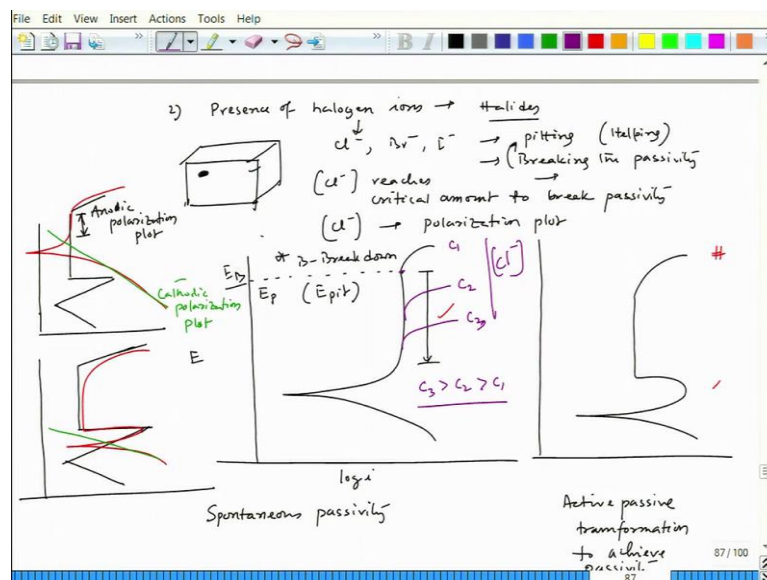 File Edit View Insert Actions Tools Help
B I
2) Presence of halogen ions → Halides
Cl⁻, Br⁻, I⁻ → pitting (Helping)
→ (Breaking the passivity
[Cl⁻] reaches
critical amount to break passivity
[Cl⁻] → polarization plot
Anodic
polarization
plot
Cathodic
polarization
plot
* B-Breakdown
E_B
E_p (E_pit)
C₁
C₂
C₃
[Cl⁻]
C₃ > C₂ > C₁
#
E
log i
Spontaneous passivity
Active passive
transformation
to achieve
passivity
87 / 100
87